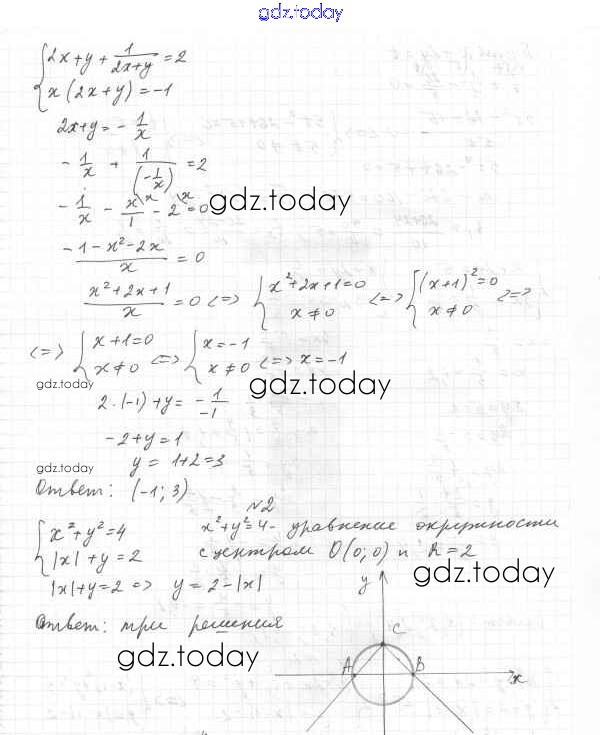 gdz.today
{2x+y+1/(2x+y)=2
{x(2x+y)=-1
2x+y=-1/x
-1/x+1/(-1/x)=2
-1/x-x\x/1-2\x=0
gdz.today
(-1-x²-2x)/x=0
(x²+2x+1)/x=0 <=> {x²+2x+1=0 x≠0 <=> {(x+1)²=0 x≠0 <=>
<=> {x+1=0 x≠0 <=> {x=-1 x≠0 <=> x=-1
gdz.today
gdz.today
2·(-1)+y=-1/-1
-2+y=1
gdz.today
y=1+2=3
Ответ: (-1; 3)
№2
{x²+y²=4 x²+y²=4- уравнение окружности
{|x|+y=2 с центром O(0; 0) и R=2
|x|+y=2 => y=2-|x|
gdz.today
y
Ответ: три решения
C
gdz.today
A B x